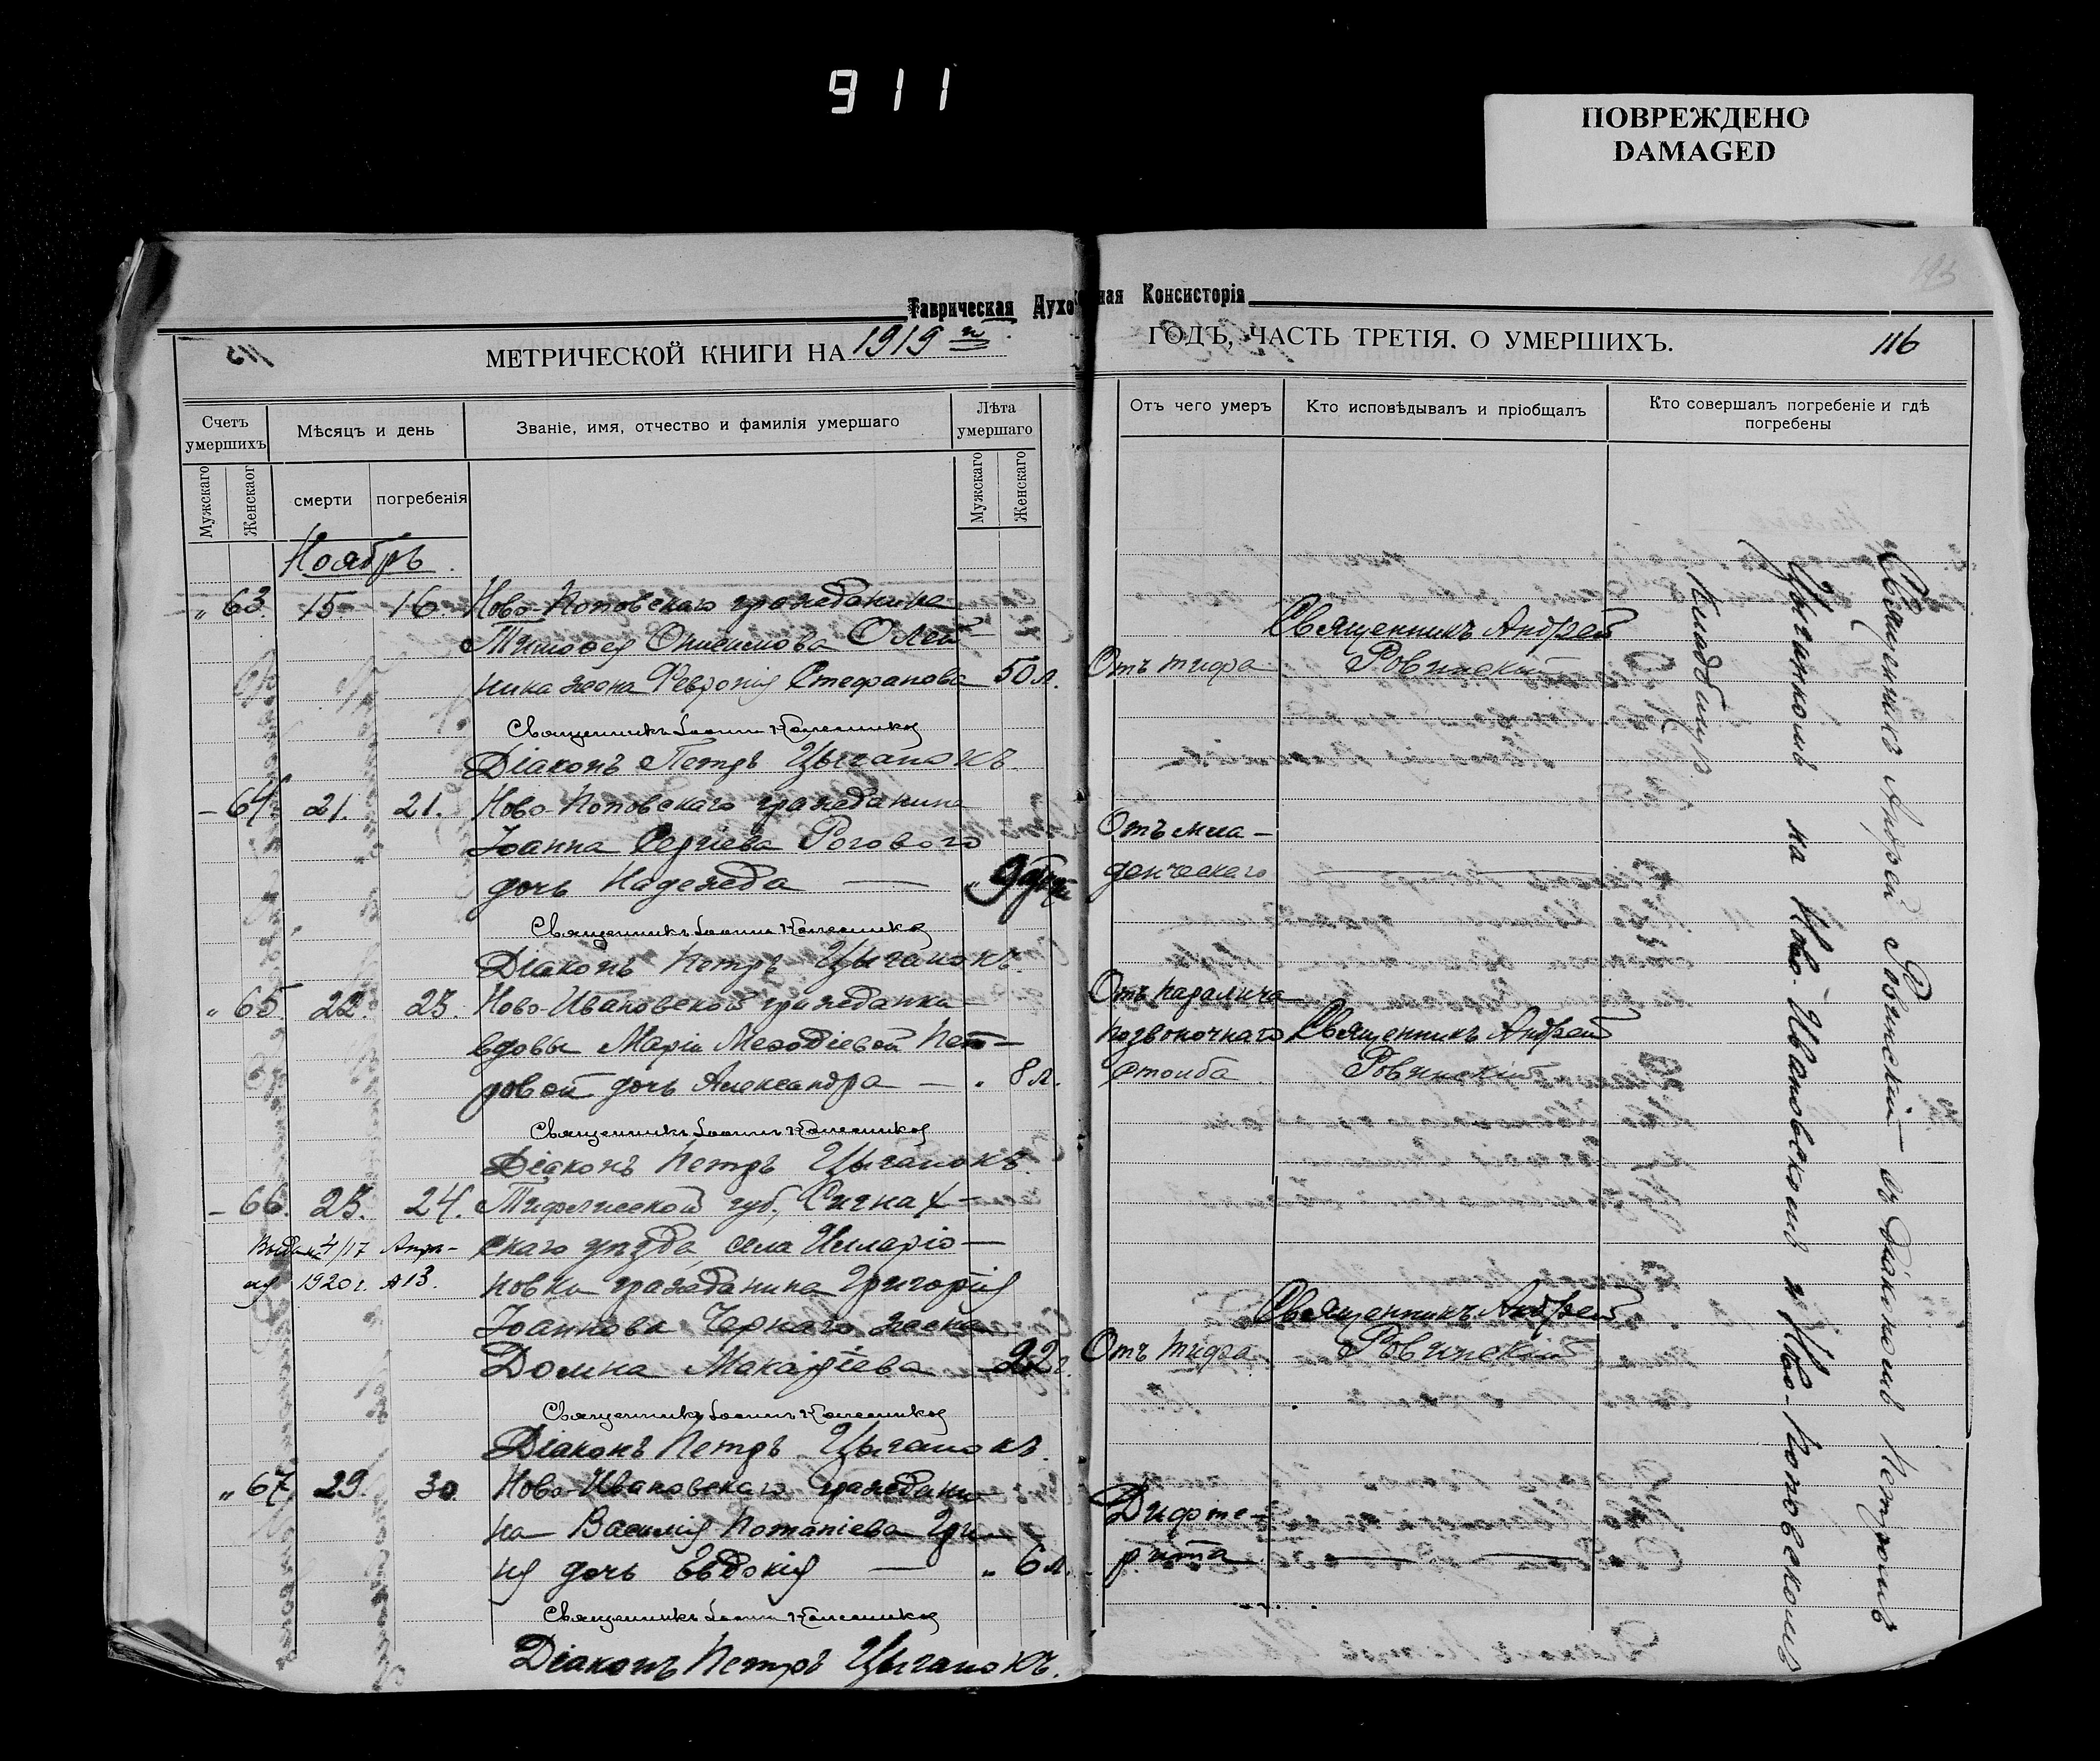 911
ПОВРЕЖДЕНО
DAMAGED
Таврическая Духовная Консисторія
МЕТРИЧЕСКОЙ КНИГИ НА 1919 й
ГОДЪ, ЧАСТЬ ТРЕТІЯ, О УМЕРШИХЪ.
116
Счетъ умершихъ
Мѣсяцъ и день
Званіе, имя, отчество и фамилія умершаго
Лѣта умершаго
Отъ чего умеръ
Кто исповѣдывалъ и пріобщалъ
Кто совершалъ погребеніе и гдѣ погребены
Мужскаго
Женскаог
смерти
погребенія
Мужскаго
Женскаго
Ноябрь.
„ 63. 15. 16. Ново-Поповскаго гражданина
Тимофея Онисимова Олей-
Священникъ Андрей
ника жена Февронія Стефанова 50 л. Отъ тифа Ровинскій
Священникъ Іоаннъ Колесниковъ
Діаконъ Петръ Цыганокъ.
– 64 21. 21. Ново-Поповскаго гражданина
Іоанна Сергіева Рогового
Отъ мла-
дочь Надежда — 9 денческаго —
Священникъ Іоаннъ Колесниковъ
Діаконъ Петръ Цыганокъ.
„ 65. 22. 23. Ново-Ивановской гражданки
Отъ паралича
вдовы Маріи Меѳодіевой Пет-
позвоночнаго Священникъ Андрей
ровой дочь Александра — „ 8 л. столба Ровинскій
Священникъ Іоаннъ Колесниковъ
Діаконъ Петръ Цыганокъ.
– 66. 23. 24. Тифлисской губ., Сигнах-
Выдана 4/17 Апре- скаго уѣзда, села Илларіо-
ля 1920 г. №13. новки гражданина Григорія
Іоаннова Чернаго жена
Священникъ Андрей
Домна Макаріева 22 г. Отъ тифа Ровинскій
Священникъ Іоаннъ Колесниковъ
Діаконъ Петръ Цыганокъ.
„ 67. 29. 30 Ново-Ивановскаго граждани-
на Василія Потапіева
Дифте-
дочь Евдокія — „ 6 л. рита — —
Священникъ Іоаннъ Колесниковъ
Діаконъ Петръ Цыганокъ.
Священникъ Андрей Ровинскій съ діакономъ Петромъ
Цыганкомъ на Ново-Ивановскомъ и Ново-Поповскомъ
кладбищѣ